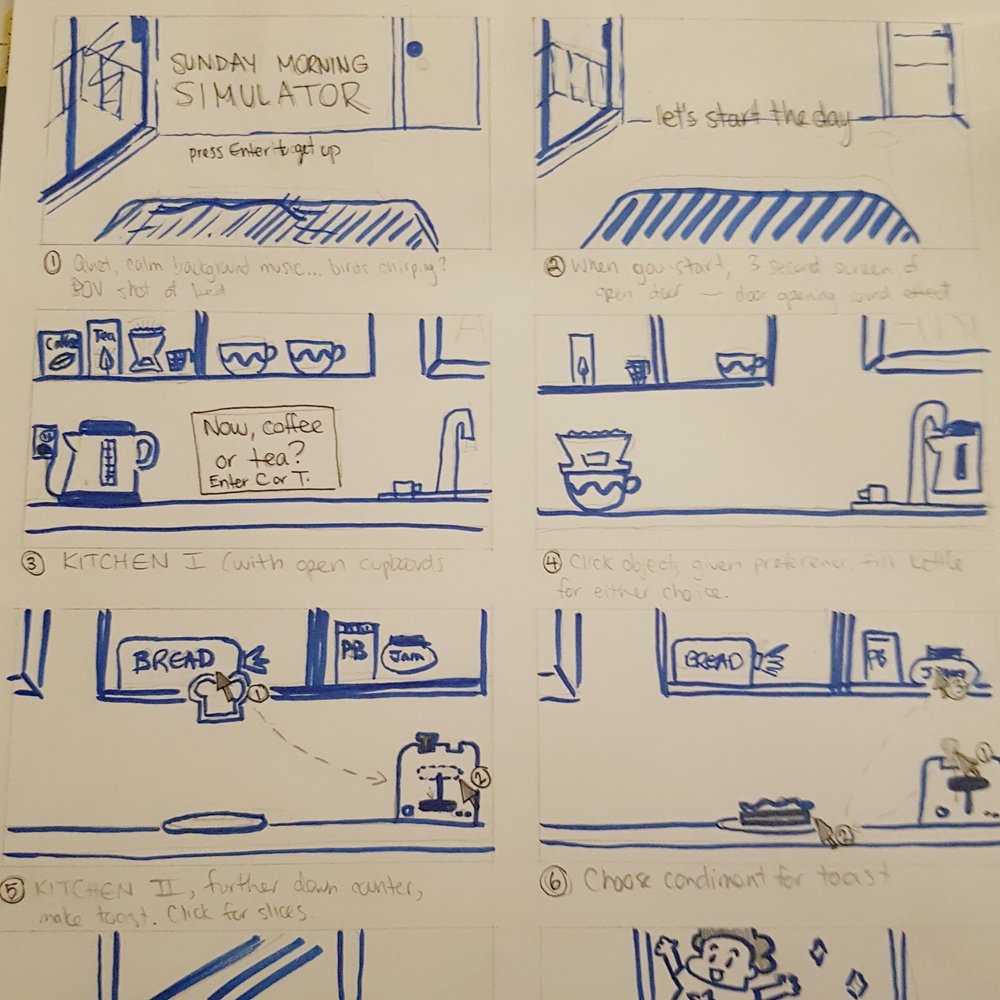 SUNDAY MORNING
SIMULATOR
press Enter to get up
let's start the day
① Quiet, calm background music... birds chirping?
POV shot of bed
② When you start, 3 second screen of
open door — door opening sound effect
Coffee
Tea
Now, coffee
or tea?
Enter C or T.
③ KITCHEN I (with open cupboards
④ Click objects given preference, fill kettle
for either choice.
BREAD
PB
Jam
①
②
BREAD
PB
①
②
③
⑤ KITCHEN II, further down counter,
make toast. Click for slices
⑥ Choose condiment for toast